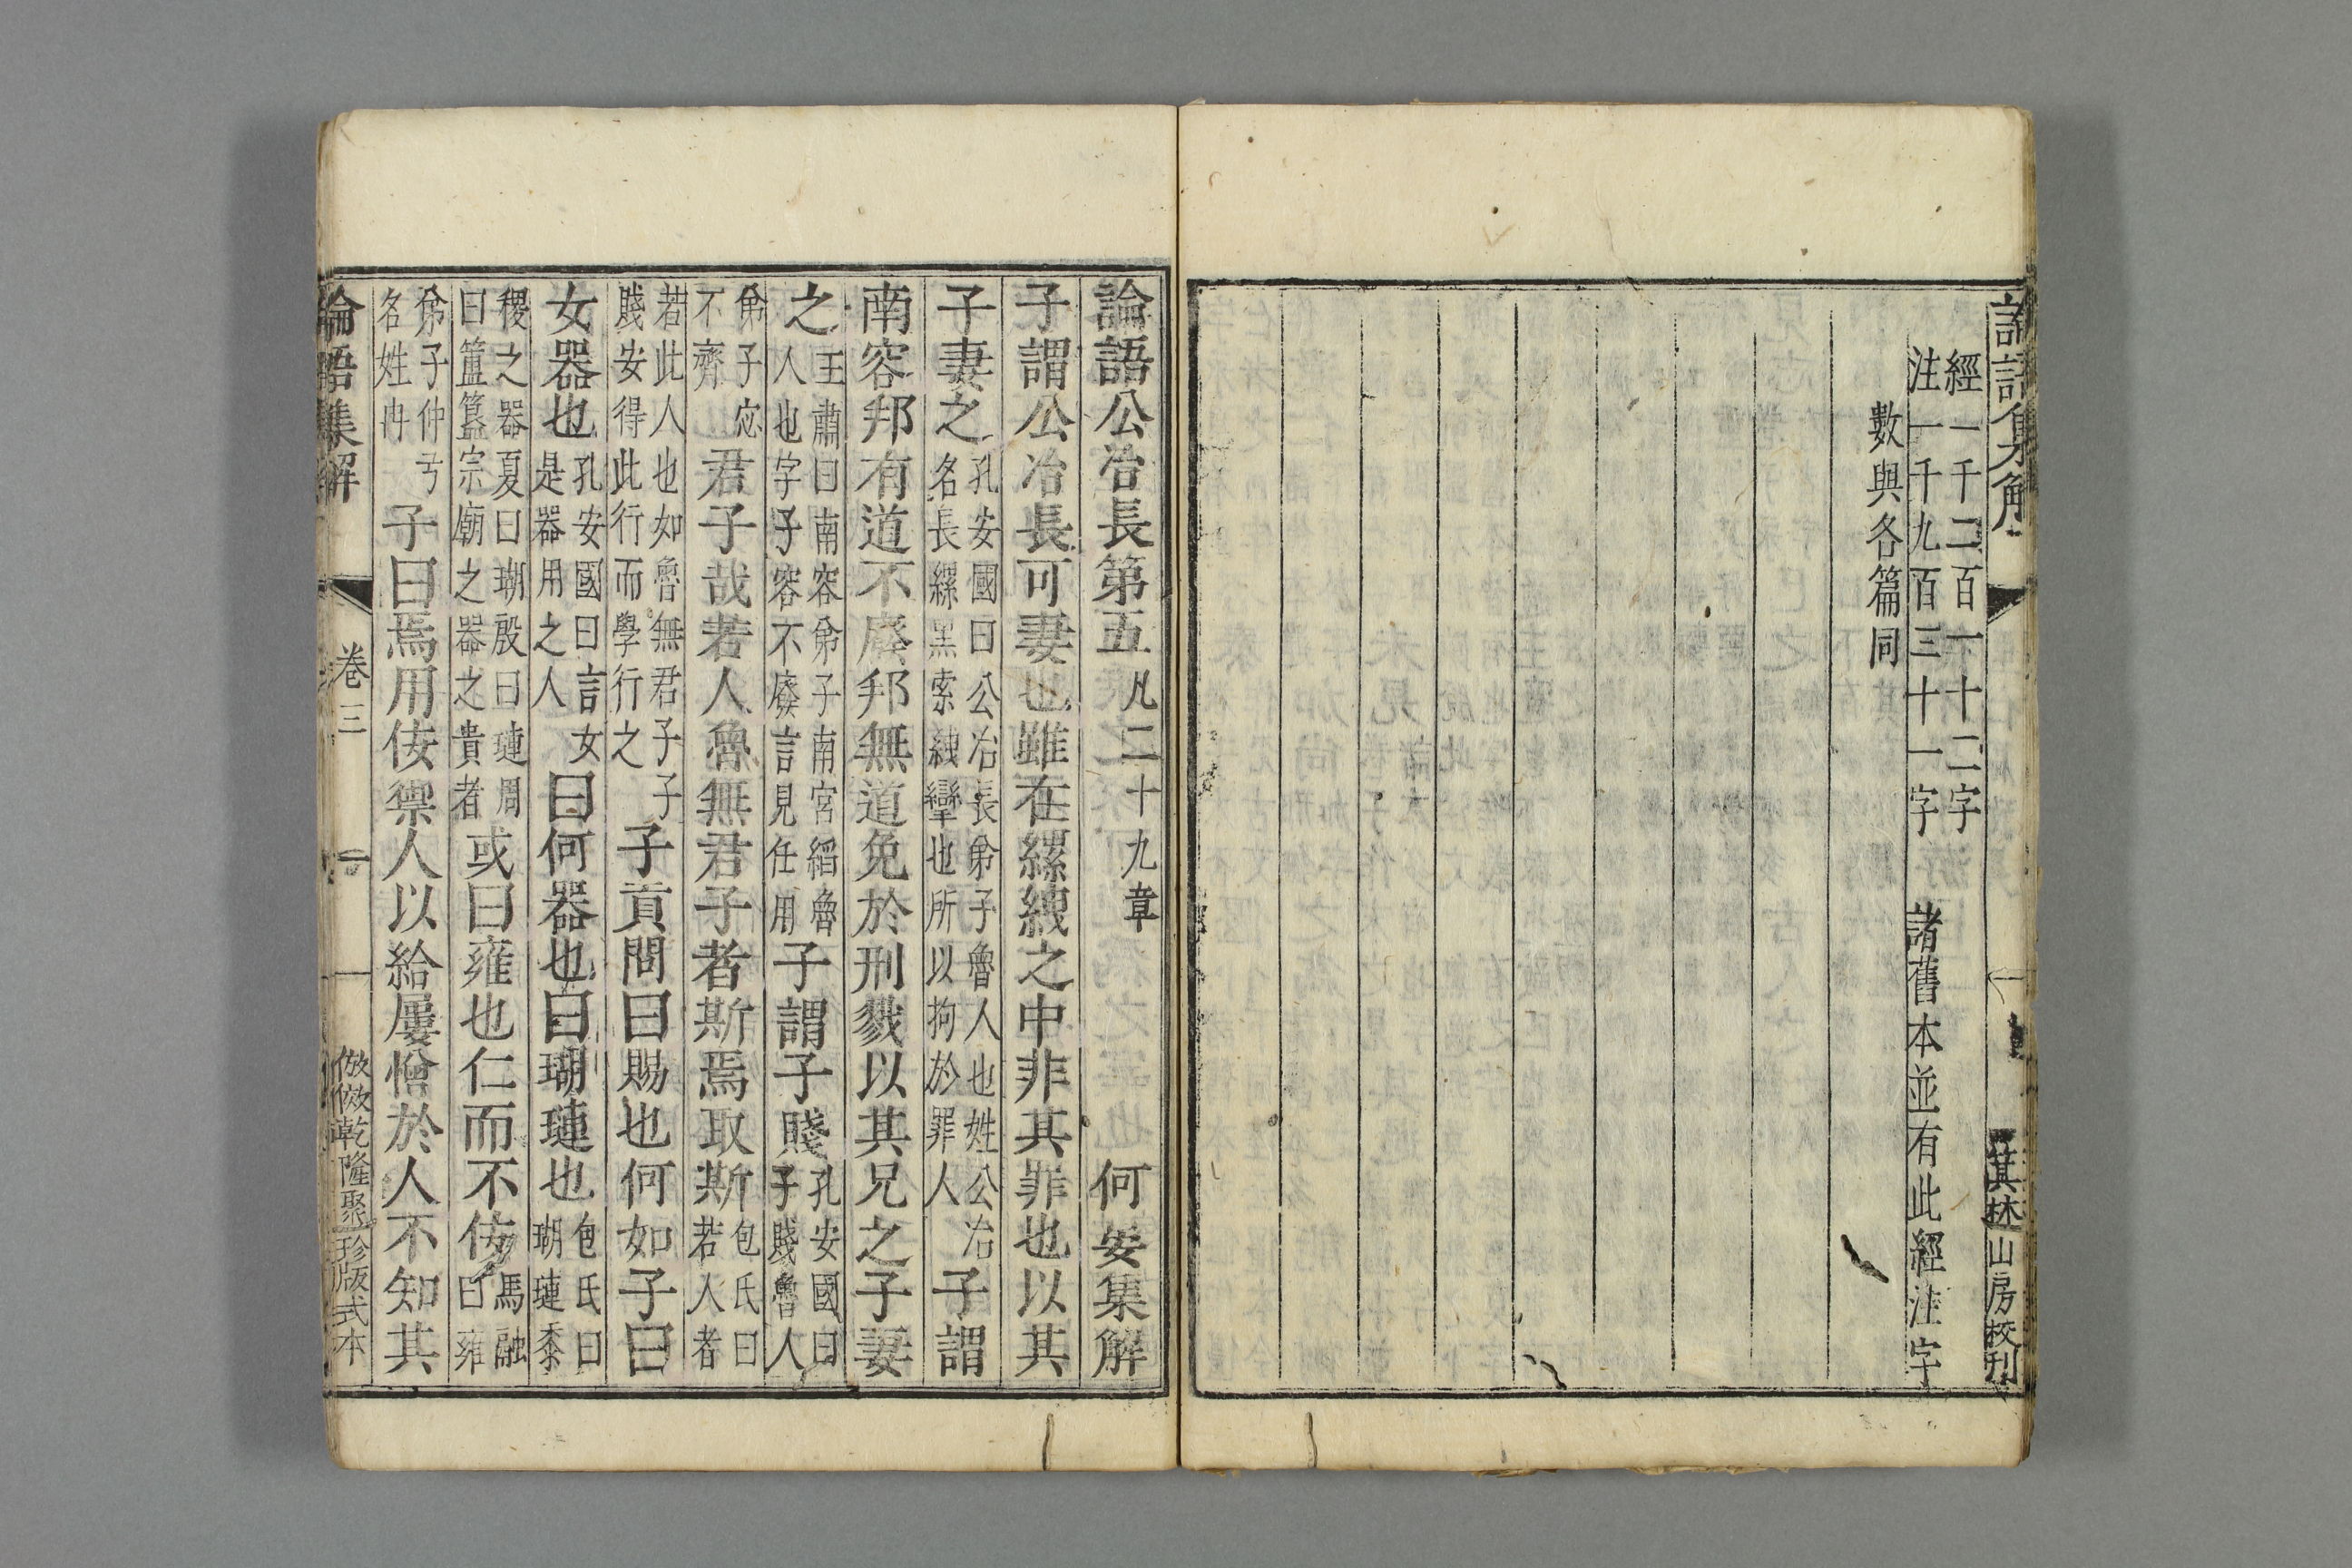 論語集解
箕林山房校刊
經一千二百一十二字
注一千九百三十一字
諸舊本並有此經注字
數與各篇同
論語公冶長第五凡二十九章 何晏集解
子謂公冶長可妻也雖在縲紲之中非其罪也以其
子妻之
孔安國曰公冶長弟子魯人也姓公冶
名長縲黑索紲攣也所以拘於罪人
子謂
南容邦有道不廢邦無道免於刑戮以其兄之子妻
之
王肅曰南容弟子南宮縚魯
人也字子容不廢言見任用
子謂子賤
孔安國曰
子賤魯人
弟子宓
不齊
君子哉若人魯無君子者斯焉取斯
包氏曰
若人者
若此人也如魯無君子子
賤安得此行而學行之
子貢問曰賜也何如子曰
女器也
孔安國曰言女
是器用之人
曰何器也曰瑚璉也
包氏曰
瑚璉黍
稷之器夏曰瑚殷曰璉周
曰簠簋宗廟之器之貴者
或曰雍也仁而不佞
馬融
曰雍
弟子仲弓
名姓冉
子曰焉用佞禦人以給屢憎於人不知其
論語集解
卷三
一
倣傚乾隆聚珍版式本